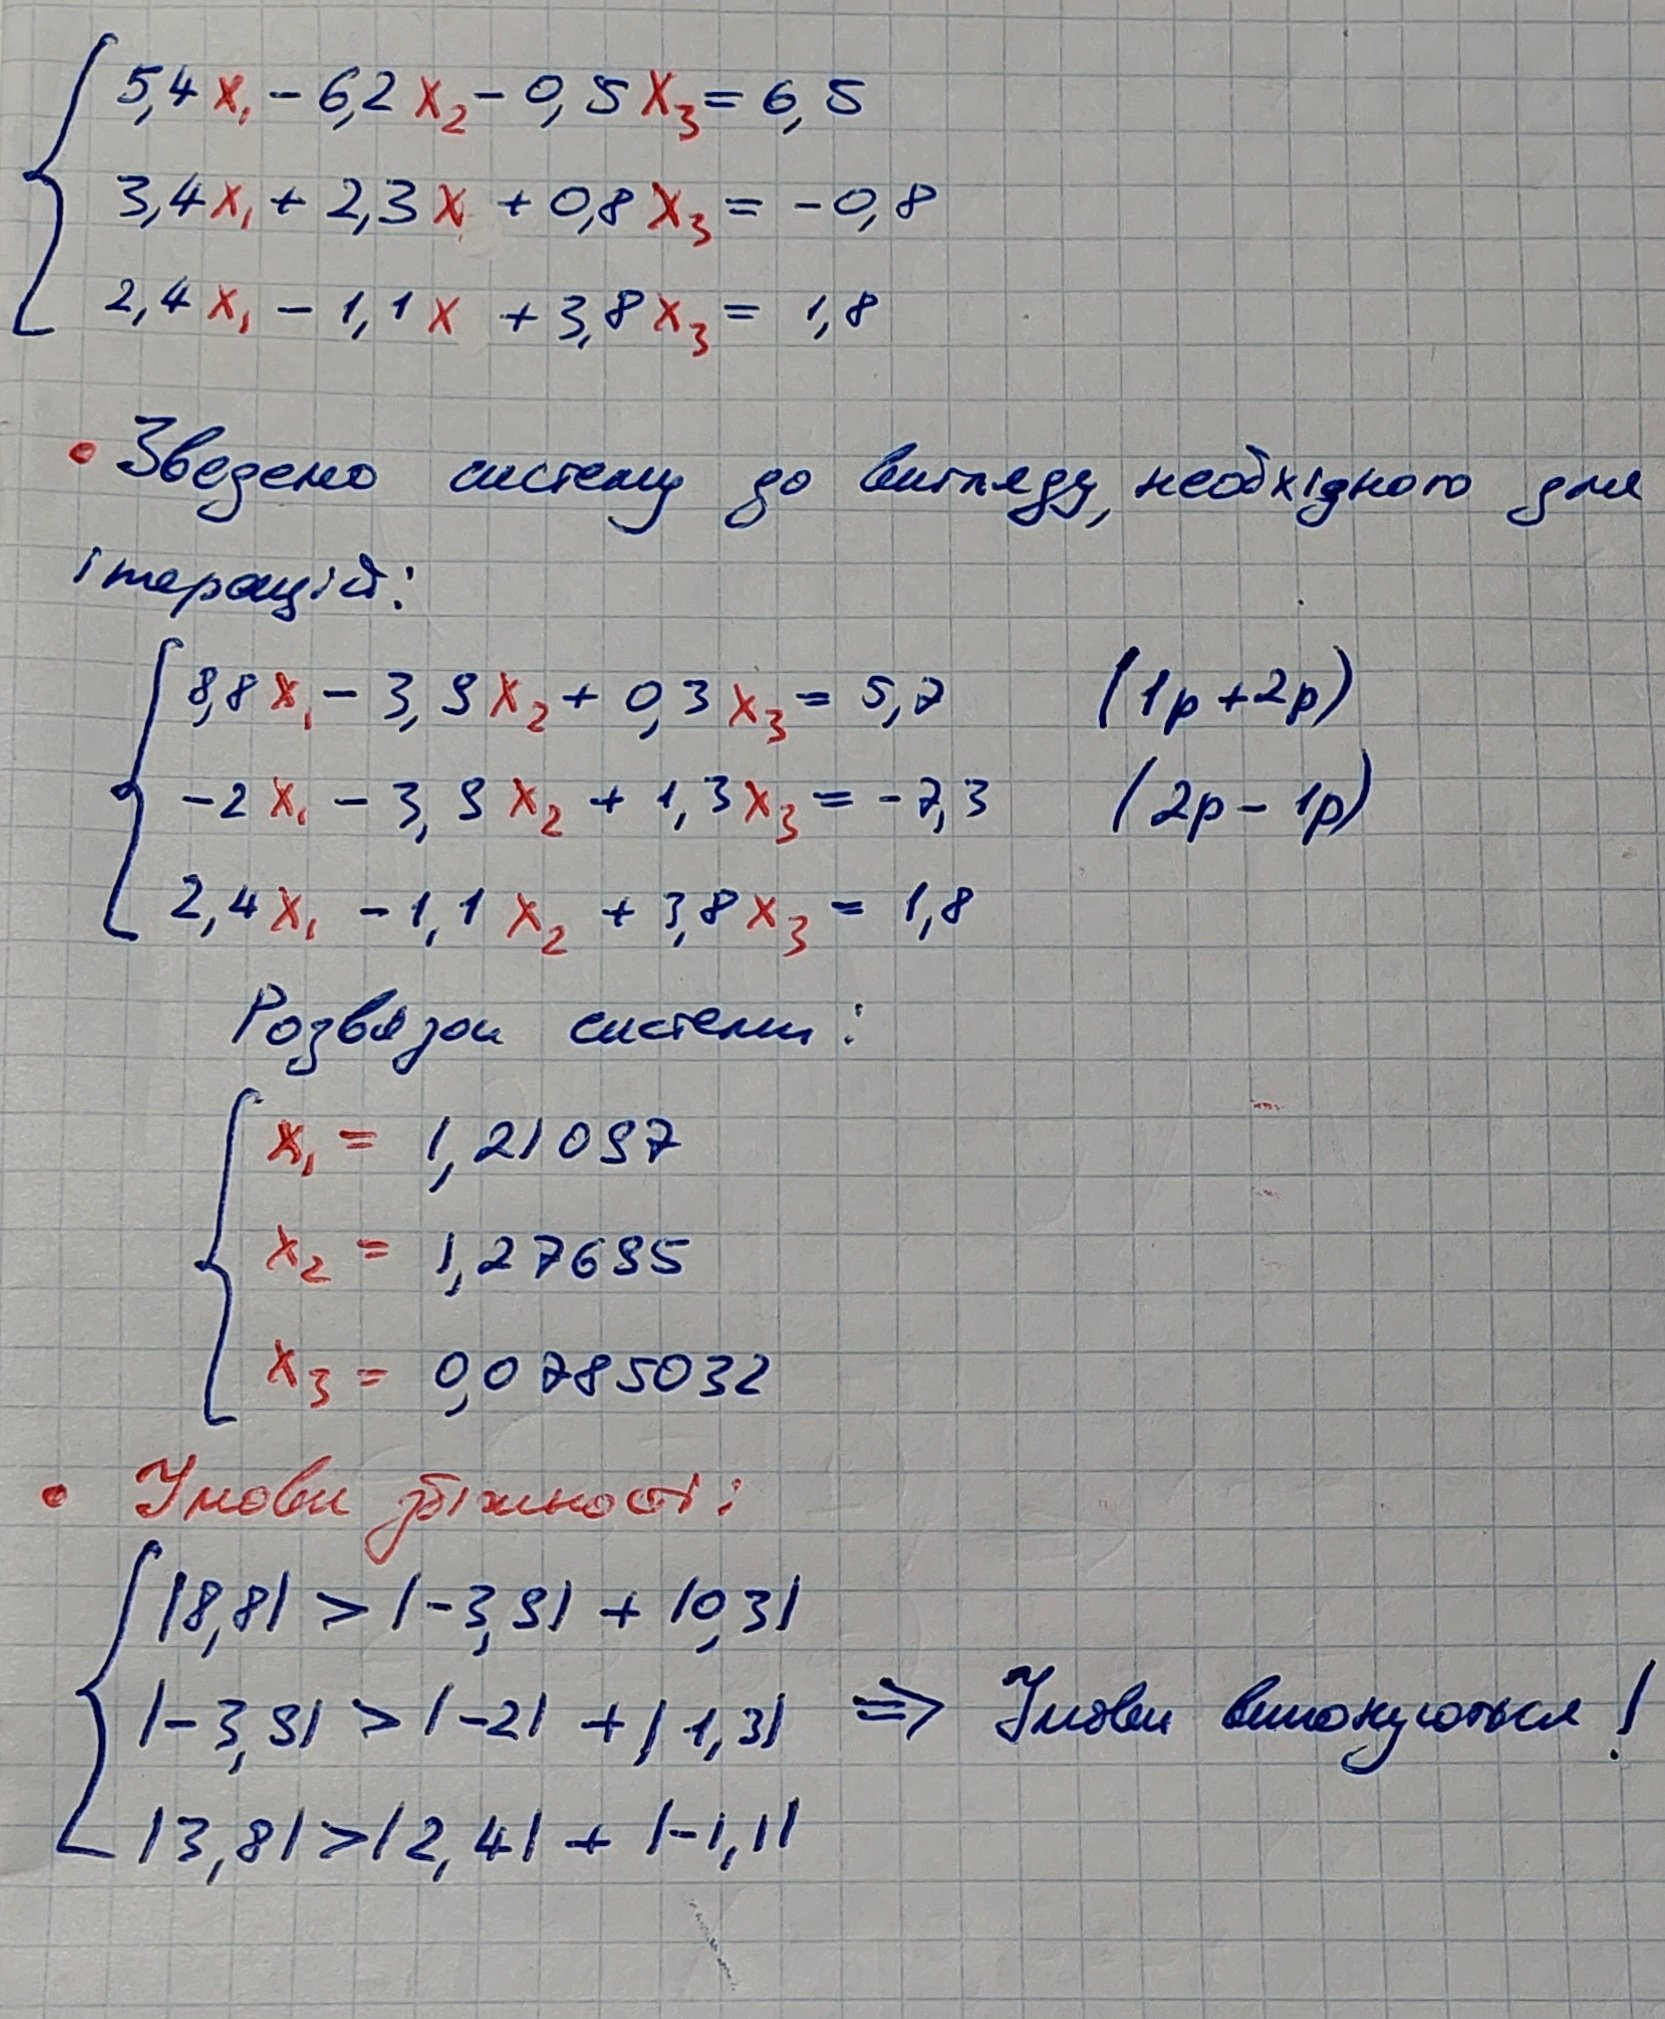 5,4x₁ - 6,2x₂ - 0,5x₃ = 6,5
3,4x₁ + 2,3x + 0,8x₃ = -0,8
2,4x₁ - 1,1x + 3,8x₃ = 1,8
• Зведемо систему до вигляду, необхідного для
ітерацій:
8,8x₁ - 3,9x₂ + 0,3x₃ = 5,7 (1р + 2р)
-2x₁ - 3,9x₂ + 1,3x₃ = -7,3 (2р - 1р)
2,4x₁ - 1,1x₂ + 3,8x₃ = 1,8
Розвязок системи:
x₁ = 1,21097
x₂ = 1,27695
x₃ = 0,0785032
• Умови збіжності:
|8,8| > |-3,9| + |0,3|
|-3,9| > |-2| + |1,3| ⇒ Умови виконуються!
|3,8| > |2,4| + |-1,1|